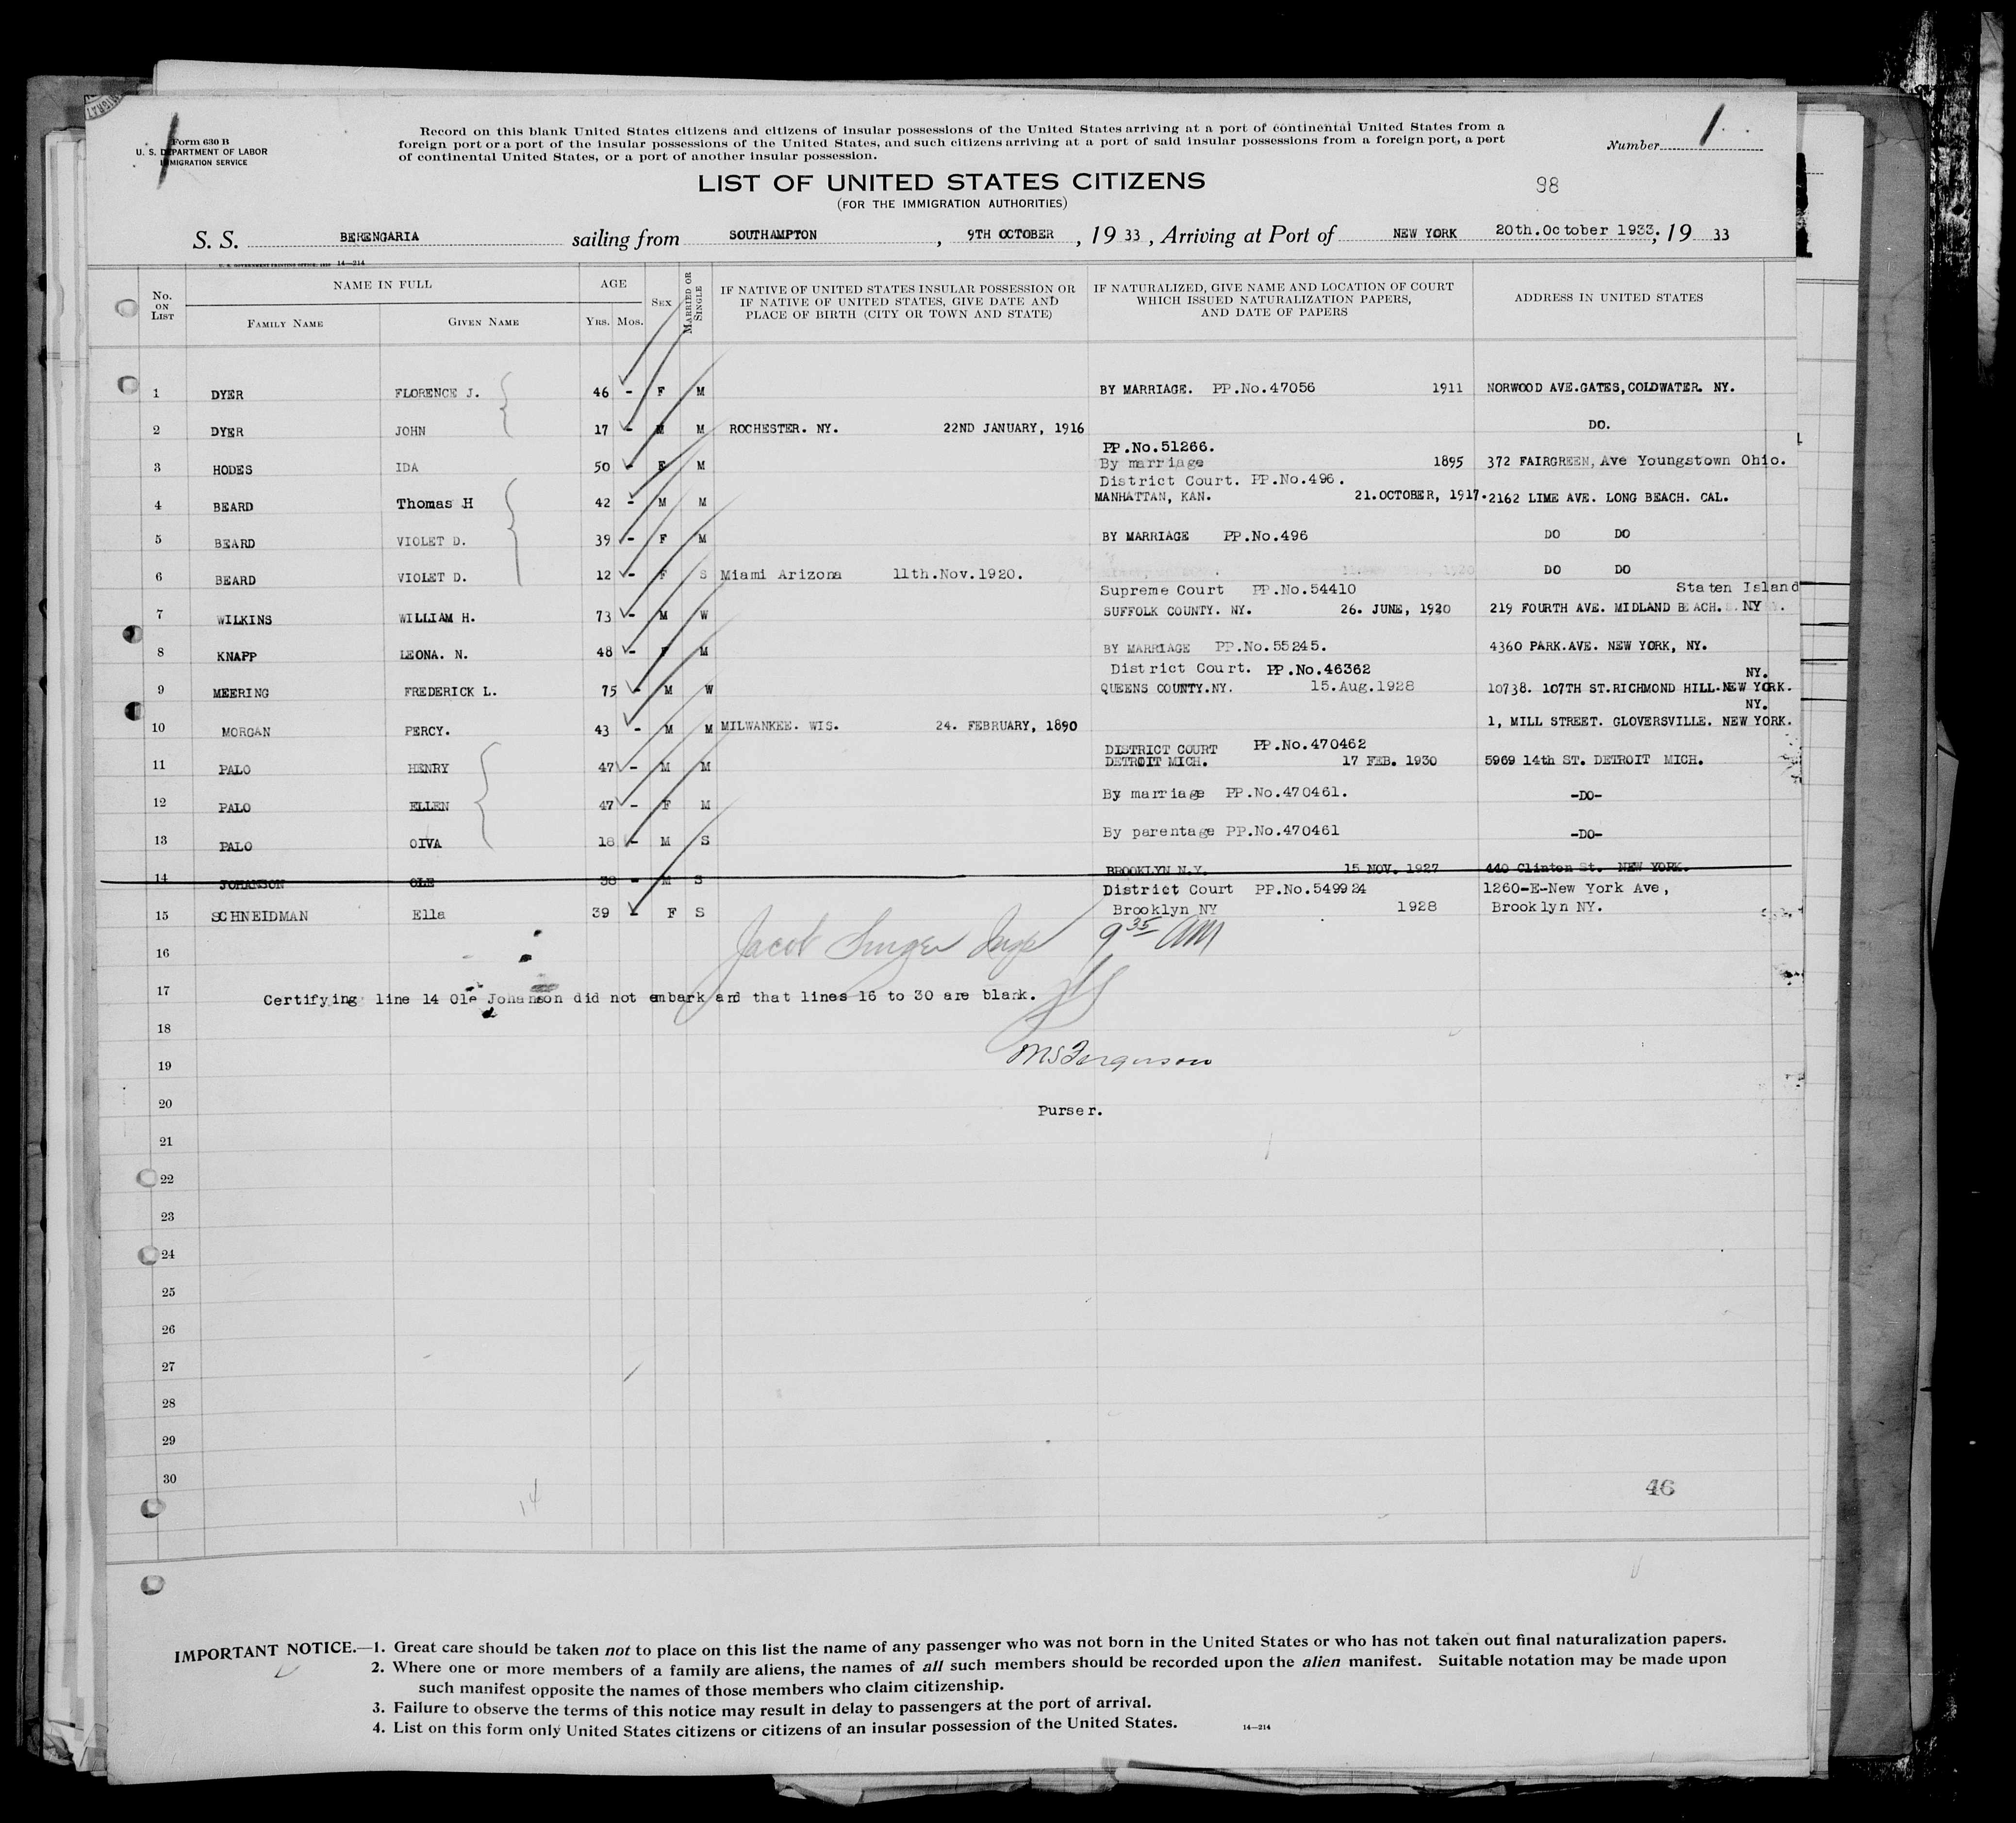 Form 630 B
U. S. DEPARTMENT OF LABOR
IMMIGRATION SERVICE
Record on this blank United States citizens and citizens of insular possessions of the United States arriving at a port of continental United States from a
foreign port or a port of the insular possessions of the United States, and such citizens arriving at a port of said insular possessions from a foreign port, a port
of continental United States, or a port of another insular possession.
Number 1
LIST OF UNITED STATES CITIZENS
(FOR THE IMMIGRATION AUTHORITIES)
98
S. S. BERENGARIA sailing from SOUTHAMPTON, 9TH OCTOBER, 19 33, Arriving at Port of NEW YORK 20th.October 1933., 19 33
14—214
No. ON LIST
NAME IN FULL
FAMILY NAME
GIVEN NAME
AGE
YRS. MOS.
SEX
MARRIED OR SINGLE
IF NATIVE OF UNITED STATES INSULAR POSSESSION OR
IF NATIVE OF UNITED STATES, GIVE DATE AND
PLACE OF BIRTH (CITY OR TOWN AND STATE)
IF NATURALIZED, GIVE NAME AND LOCATION OF COURT
WHICH ISSUED NATURALIZATION PAPERS,
AND DATE OF PAPERS
ADDRESS IN UNITED STATES
1 DYER FLORENCE J. 46 - F M BY MARRIAGE. PP.No.47056 1911 NORWOOD AVE.GATES,COLDWATER. NY.
2 DYER JOHN 17 - M M ROCHESTER. NY. 22ND JANUARY, 1916 DO.
PP.No.51266.
3 HODES IDA 50 - F M By marriage 1895 372 FAIRGREEN, Ave Youngstown Ohio.
District Court. PP.No.496.
4 BEARD Thomas H 42 - M M MANHATTAN, KAN. 21.OCTOBER, 1917. 2162 LIME AVE. LONG BEACH. CAL.
5 BEARD VIOLET D. 39 - F M BY MARRIAGE PP.No.496 DO DO
6 BEARD VIOLET D. 12 - F S Miami Arizona 11th.Nov.1920. DO DO
Supreme Court PP.No.54410 Staten Island
7 WILKINS WILLIAM H. 73 - M W SUFFOLK COUNTY. NY. 26. JUNE, 1920 219 FOURTH AVE. MIDLAND BEACH. NY
8 KNAPP LEONA. N. 48 - F M BY MARRIAGE PP.No.55245. 4360 PARK.AVE. NEW YORK, NY.
District Court. PP.No.46362 NY.
9 MEERING FREDERICK L. 75 - M W QUEENS COUNTY.NY. 15.Aug.1928 10738. 107TH ST.RICHMOND HILL.NEW YORK.
NY.
10 MORGAN PERCY. 43 - M M MILWANKEE. WIS. 24. FEBRUARY, 1890 1, MILL STREET. GLOVERSVILLE. NEW YORK.
DISTRICT COURT PP.No.470462
11 PALO HENRY 47 - M M DETROIT MICH. 17 FEB. 1930 5969 14th ST. DETROIT MICH.
12 PALO ELLEN 47 - F M By marriage PP.No.470461. -DO-
13 PALO OIVA 18 - M S By parentage PP.No.470461 -DO-
14 JOHANSON OLE 38 - M S BROOKLYN N.Y. 15 NOV. 1927 440 Clinton St. NEW YORK.
District Court PP.No.549924 1260-E-New York Ave,
15 SCHNEIDMAN Ella 39 - F S Brooklyn NY 1928 Brooklyn NY.
Jacob Singer Insp 9 35 AM
16
17 Certifying line 14 Ole Johanson did not embark and that lines 16 to 30 are blank.
18
19 Ferguson
20 Purser.
21
22
23
24
25
26
27
28
29
30
14
46
IMPORTANT NOTICE.—1. Great care should be taken not to place on this list the name of any passenger who was not born in the United States or who has not taken out final naturalization papers.
2. Where one or more members of a family are aliens, the names of all such members should be recorded upon the alien manifest. Suitable notation may be made upon
such manifest opposite the names of those members who claim citizenship.
3. Failure to observe the terms of this notice may result in delay to passengers at the port of arrival.
4. List on this form only United States citizens or citizens of an insular possession of the United States.
14—214